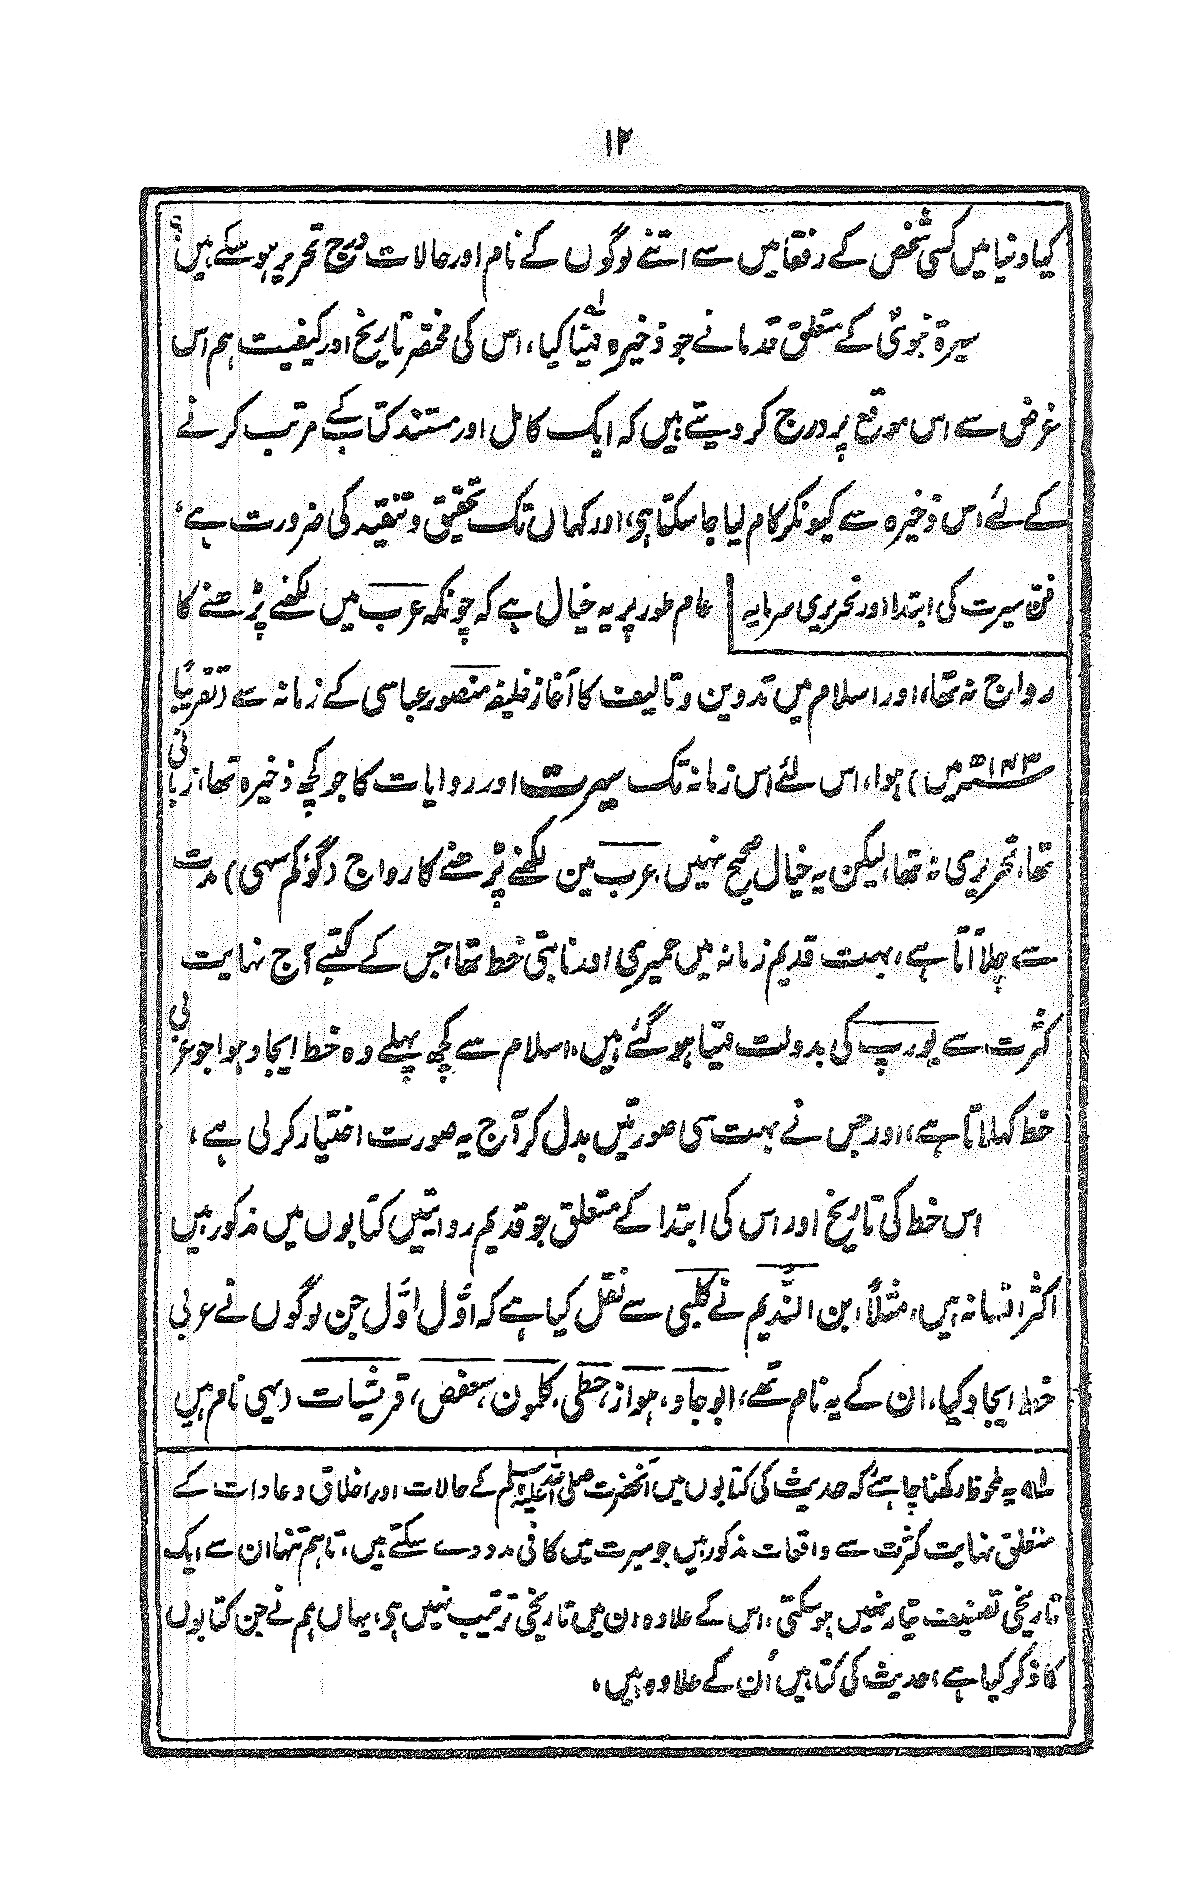 ۱۲
کیا دنیا میں کسی شخص کے رفقا میں سے اتنے لوگوں کے نام اور حالات درج تحریر ہو سکے ہیں؟
سیرۃ نبویؐ کے متعلق قدما نے جو ذخیرہ مہیا کیا، اس کی مختصر تاریخ اور کیفیت ہم اس
غرض سے اس موقع پر درج کر دیتے ہیں کہ ایک کامل اور مستند کتاب کے مرتب کرنے
کے لئے اس ذخیرہ سے کیونکر کام لیا جا سکتا ہی، اور کہاں تک تحقیق و تنقید کی ضرورت ہے،
فن سیرت کی ابتدا اور تحریری سرمایہ عام طور پر یہ خیال ہے کہ چونکہ عرب میں لکھنے پڑھنے کا
رواج نہ تھا، اور اسلام میں تدوین و تالیف کا آغاز خلیفہ منصور عباسی کے زمانہ سے (تقریباً
۱۴۳ھ میں) ہوا، اس لئے اس زمانہ تک سیرت اور روایات کا جو کچھ ذخیرہ تھا، زبانی
تھا، تحریری نہ تھا، لیکن یہ خیال صحیح نہیں، عرب مین لکھنے پڑھنے کا رواج (گو کم سہی) مدت
سے چلا آتا ہے، بہت قدیم زمانہ میں حمیری اور نابتی خط تھا، جس کے کتبے آج نہایت
کثرت سے یورپ کی بدولت مہیا ہو گئے ہیں، اسلام سے کچھ پہلے وہ خط ایجاد ہوا جو عربی
خط کہلاتا ہے، اور جس نے بہت سی صورتیں بدل کر آج یہ صورت اختیار کر لی ہے،
اس خط کی تاریخ اور اس کی ابتدا کے متعلق جو قدیم روایتیں کتابوں میں مذکور ہیں
اکثر افسانہ ہیں، مثلاً ابن الندیم نے کلبی سے نقل کیا ہے کہ اوّل اوّل جن لوگوں نے عربی
خط ایجاد کیا، ان کے یہ نام تھے، ابو جاد، ہواز، حطی، کلمون، سعفص، قریشات (یہی نام ہیں
لہ یہ ملحوظ رکھنا چاہئے کہ حدیث کی کتابوں میں آنحضرت صلی اللہ علیہ وسلم کے حالات اور اخلاق و عادات کے
متعلق نہایت کثرت سے واقعات مذکور ہیں جو سیرت میں کافی مدد دے سکتے ہیں، تاہم تنہا ان سے ایک
تاریخی تصنیف تیار نہیں ہو سکتی، اس کے علاوہ ان میں تاریخی ترتیب نہیں ہی، یہاں ہم نے جن کتابوں
کا ذکر کیا ہے، حدیث کی کتابیں اُن کے علاوہ ہیں،